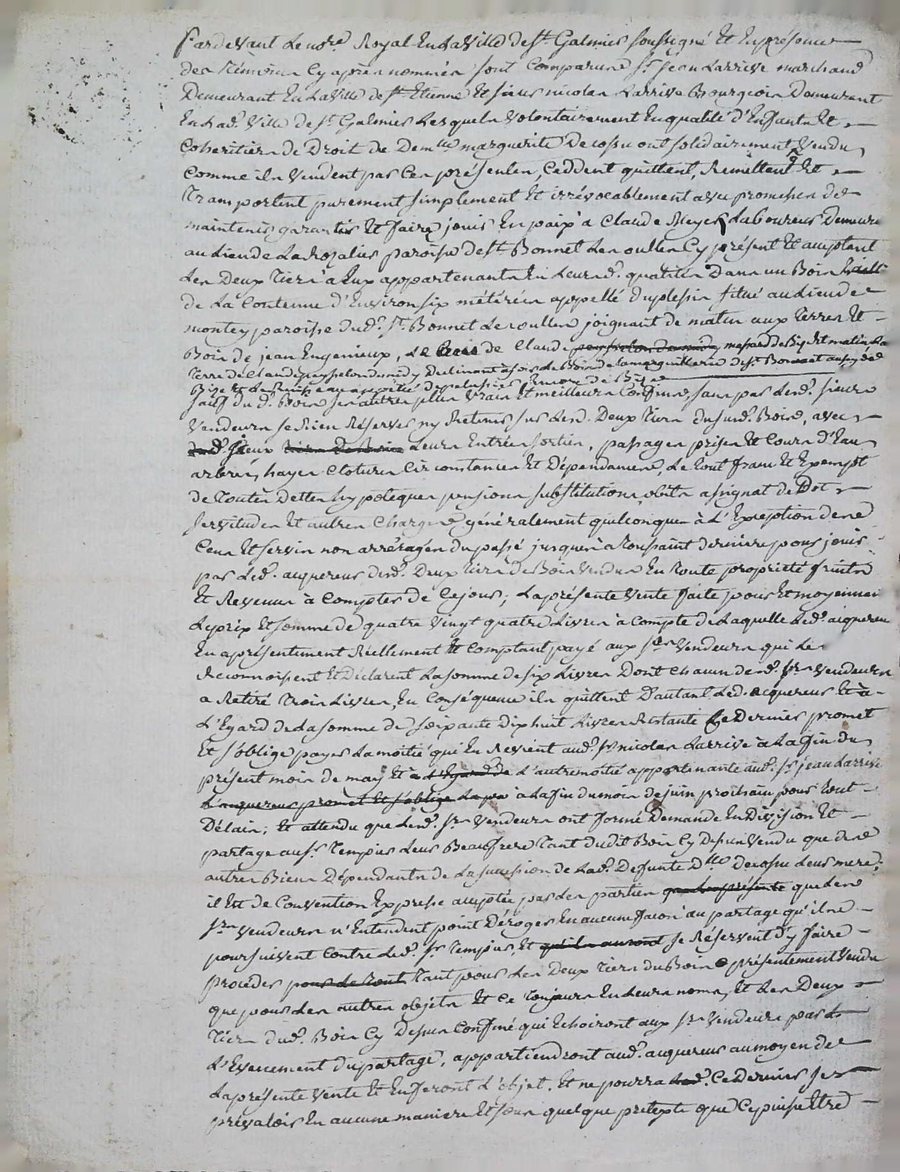 Pardevant Le no.re Royal En La Ville de St. Galmier soussigné Et En présence
des Témoins Cy après nommés sont Comparus Sr. Jean Larrive marchand
Demeurant En La Ville de St. Etienne Et sieur nicolas Larrive Bourgeois Demeurant
En Lad. Ville de St. Galmier Lesquels Volontairement En qualité d'Enfants Et
Coheritiers de Droit de Dem.lle marguerite Decossu ont solidairement Vendu
Comme ils Vendent par Ces présentes, Ceddent quittent, Remettent Et
Transportent purement simplement Et irrévocablement avec promesses de
maintenir garantir Et faire jouir En paix a Claude Meyer Laboureur Demeurant
au Lieu de La paroisse de St. Bonnet Les oulles Cy présent Et acceptant
Les Deux Tiers a Eux appartenants En Leursd. qualités Dans un Bois
de La Contenue d'Environ six métérées appellé Duplessis situé au Lieu de
montey paroisse dud. St. Bonnet Les oulles joignant de matin aux Terres Et
Bois de jean Engenieux, de de Claude
Terre de Claude peysselon de midy Declinant a soir Le Bois de La marguillerie de St. Bonnet
Bize Et de
sauf dud. Bois ses autres plus Vrais Et meilleurs Confins, sans par Lesd. sieurs
Vendeurs se Rien Réserver ny Retenir sur Lesd. Deux Tiers dususd. Bois, avec
Leurs Entrées sorties, passages prises Et Cours d'Eau
arbres, hayes Clotures Circonstances Et Dépendances Le tout franc Et Exempt
de Toutes Dettes hypoteques pensions substitutions, obits assignat de Dot
servitudes Et autres Charges généralement quelconques à L'Exception des
Cens Et servis non arréragés du passé jusques a Toussaint derniere pour jouir
par Led. acquereur desd. Deux Tiers de Bois Vendus En toute propriété fruits
Et Revenus à Compter de Cejour; La présente Vente faite pour Et moyennant
Le prix Et somme de quatre Vingt quatre Livres à Compte de Laquelle Led. acquereur
En a présentement Réellement Et Comptant payé aux Srs. Vendeurs qui Le
Reconnoissent Et Déclarent La somme de six Livres Dont Chacun desd. Srs. Vendeurs
a Retiré Trois Livres, En Conséquence ils quittent D'autant Led. acquereur Et à
L'Egard de La somme de soixante dix huit Livres Restante Ce dernier promet
Et s'oblige payer La moitié qui En Revient aud. Sr. nicolas Larrive à La fin du
présent mois de may Et à L'egard de L'autre moitié appartenante aud. Sr. jean Larrive
L'acquereur promet Et s'oblige La à La fin du mois de juin prochain pour tout
Délais; Et attendu que Lesd. Srs. Vendeurs ont formé Demande En Division Et
partage au Sr. Tempier Leur Beaufrere Tant dudit Bois Cy dessus Vendu que des
autres Biens Dépendants de La succession de Lad. Defunte D.lle Decossu Leur mere;
il Est de Convention Expresse acceptée par Les parties que Les
Srs. Vendeurs n'Entendent point Déroger En aucune facon au partage qu'ils
poursuivent Contre Led. Sr. Tempier, Et qu'ils auront se Réservent d'y faire
Procéder pour Le Tout Tant pour Les Deux Tiers du Bois présentement Vendu
que pour Les autres objets Et Ce Toujours En Leurs noms, Et Les Deux
Tiers dud. Bois Cy Dessus Confiné qui Echoiront aux Srs. Vendeurs par
L'Evenement du partage, appartiendront aud. acquereur au moyen de
La présente Vente Et En feront L'objet, Et ne pourra Led. Ce dernier se
prévaloir En aucune maniere Et sous quelque prétexte que Ce puisse Etre